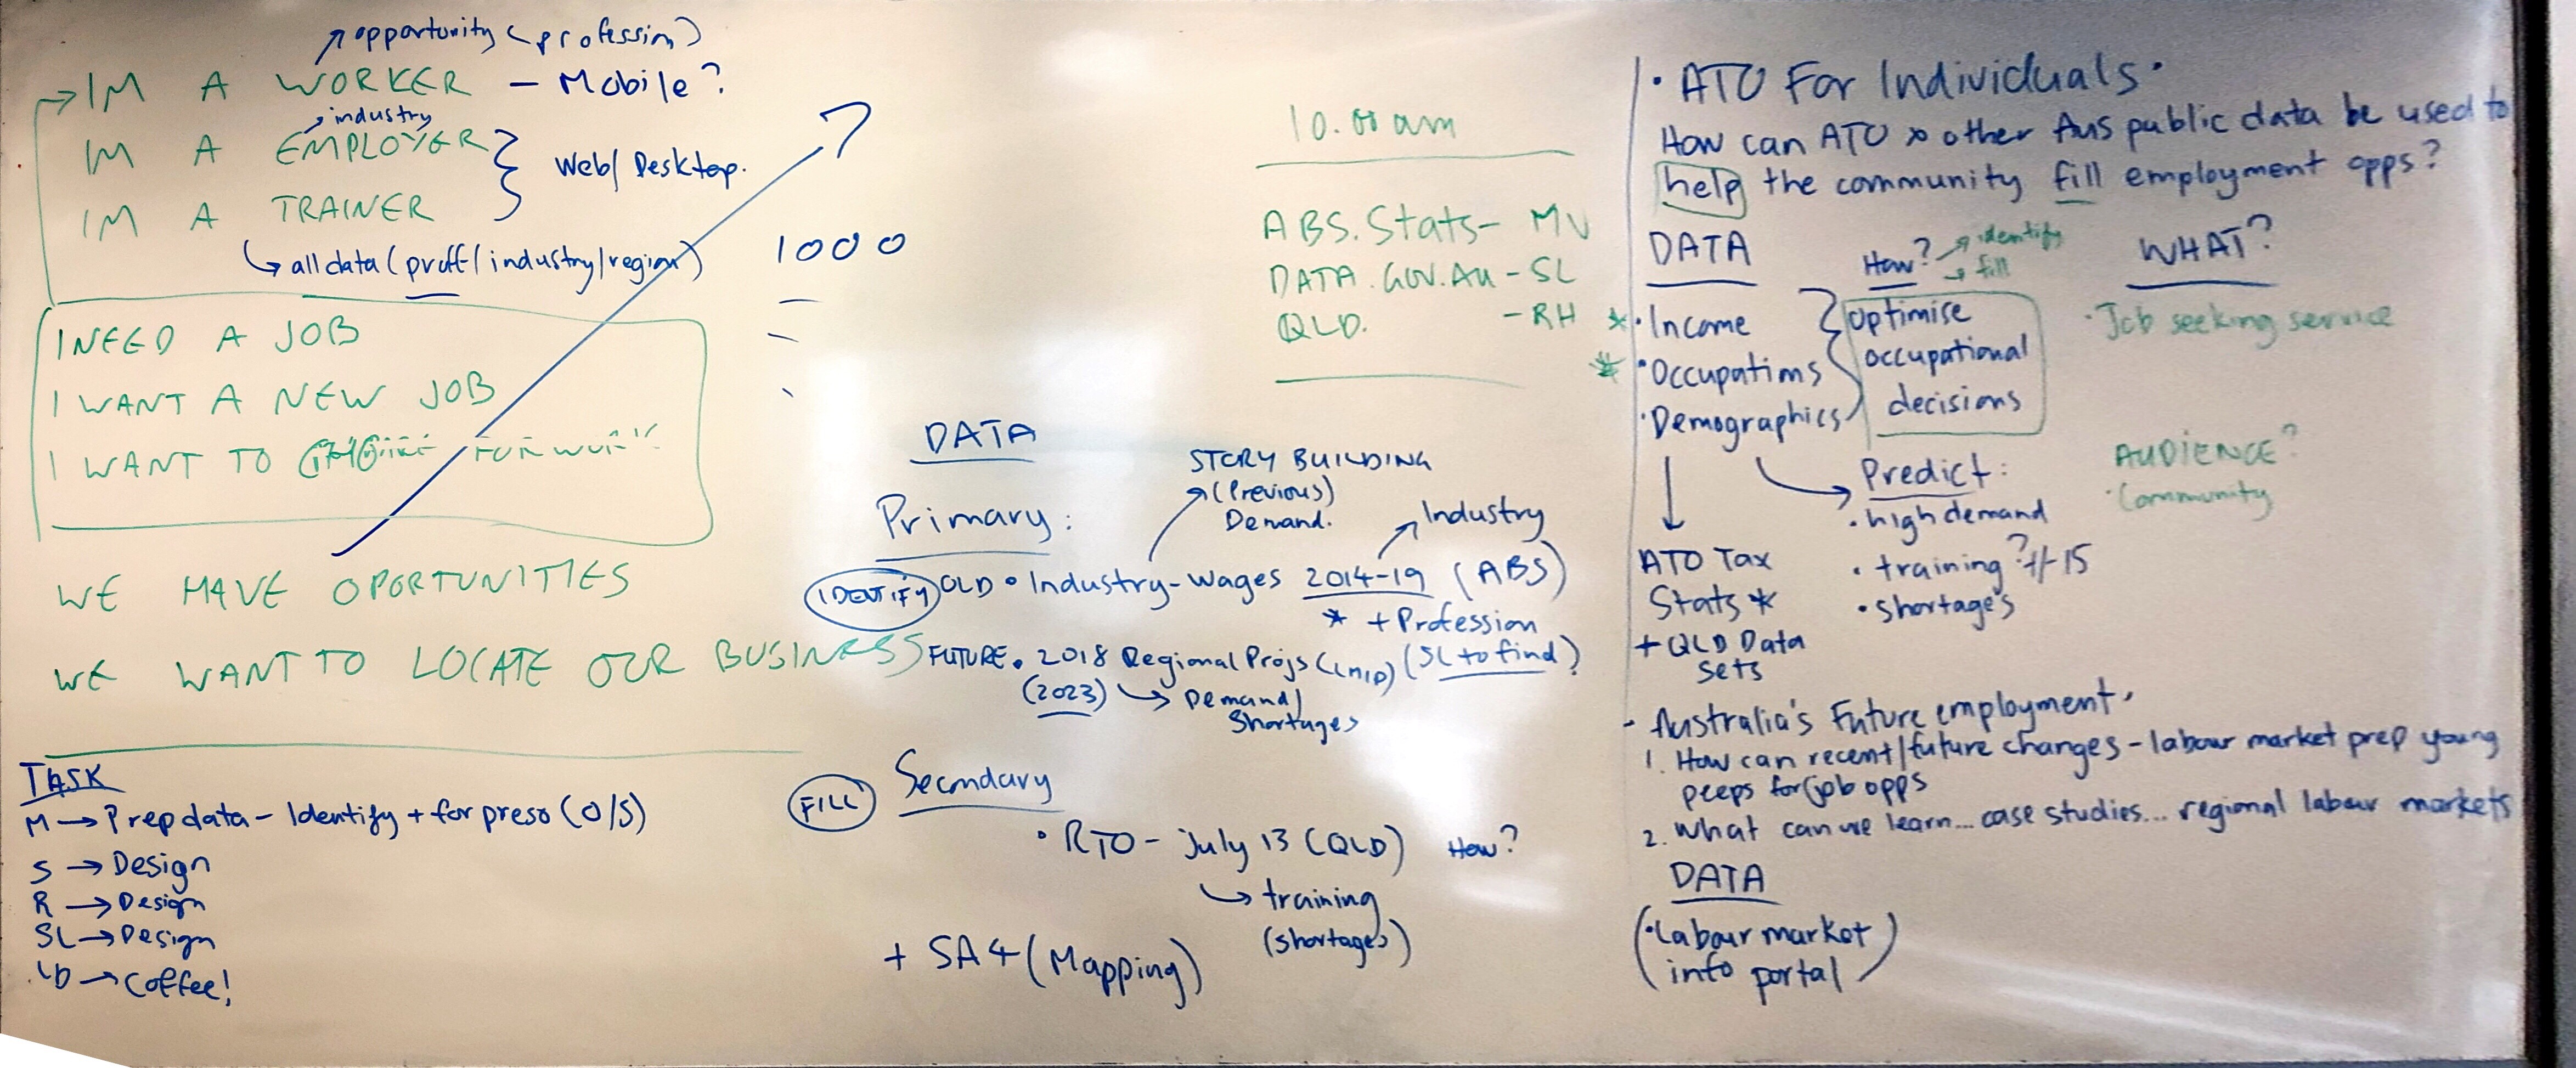 opportunity (profession)
IM A WORKER - Mobile?
industry
IM A EMPLOYER
Web/Desktop.
IM A TRAINER
all data (proff/industry/region)
I NEED A JOB
I WANT A NEW JOB
I WANT TO FOR WORK
WE HAVE OPORTUNITIES
WE WANT TO LOCATE OUR BUSINESS
TASK
M → Prep data - Identify + for preso (O/S)
S → Design
R → Design
SL → Design
D → Coffee!
1000
10.00am
ABS.Stats - MV
DATA.GOV.AU - SL
QLD. - RH
DATA
STORY BUILDING
(Previous)
Demand.
Primary:
Industry
IDENTIFY OLD • Industry-wages 2014-19 (ABS)
* + Profession
FUTURE • 2018 Regional Projs (LMIP) (SL to find)
(2023) → Demand/
Shortages
FILL Secondary
• RTO - July 13 (QLD) How?
→ training
(shortages)
+ SA4 (Mapping)
• ATO For Individuals •
How can ATO & other Aus public data be used to
help the community fill employment opps?
DATA
How? → identify
→ fill
WHAT?
* • Income
* • Occupations
• Demographics
optimise
occupational
decisions
• Job seeking service
AUDIENCE?
• Community
Predict:
• high demand
• training?
• shortages
ATO Tax
Stats *
+ QLD Data
sets
- Australia's Future employment.
1. How can recent/future changes - labour market prep young
peeps for job opps
2. What can we learn... case studies... regional labour markets
DATA
(• Labour market
info portal)